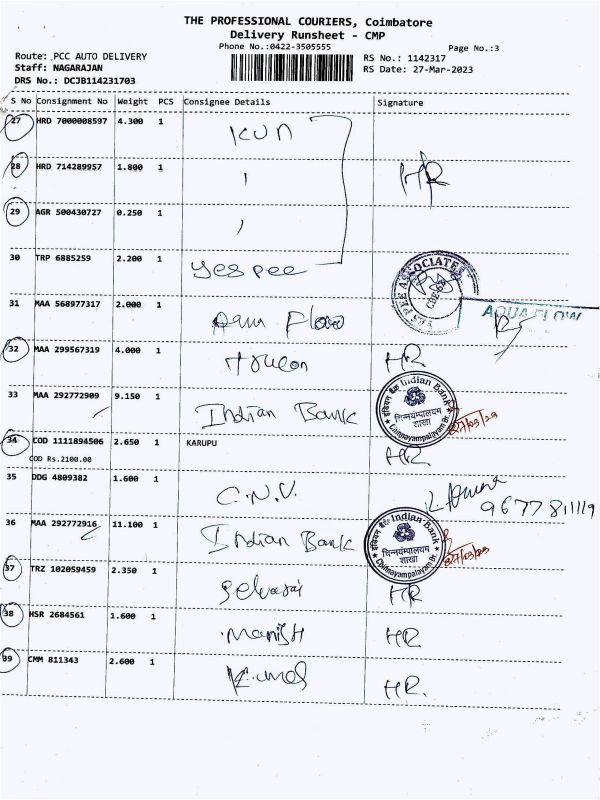 THE PROFESSIONAL COURIERS, Coimbatore
Delivery Runsheet - CMP
Phone No.:0422-3505555
Page No.:3
Route: PCC AUTO DELIVERY
RS No.: 1142317
Staff: NAGARAJAN
RS Date: 27-Mar-2023
DRS No.: DCJB114231703
S No Consignment No Weight PCS Consignee Details Signature
27 HRD 7000008597 4.300 1 KUN
28 HRD 714289957 1.800 1 " HR
29 AGR 500430727 0.250 1 "
30 TRP 6885259 2.200 1 yes pee
YES PEE ASSOCIATES
31 MAA 568977317 2.000 1 Flow AQUA FLOW
32 MAA 299567319 4.000 1 HR
33 MAA 292772909 9.150 1 Indian Bank
इंडियन बैंक Indian Bank
चिन्नयंम्पालयम
शाखा
Chinnayampalayam Br.
27/03/23
34 COD 1111894506 2.650 1 KARUPU HR
COD Rs.2100.00
35 DDG 4809382 1.600 1 C.N.V. 9677811119
36 MAA 292772916 11.100 1 Indian Bank
इंडियन बैंक Indian Bank
चिन्नयंम्पालयम
शाखा
Chinnayampalayam Br.
27/03/23
37 TRZ 102059459 2.350 1 Selvaraj HR
38 HSR 2684561 1.600 1 Manish HR
39 CMM 811343 2.600 1 HR.